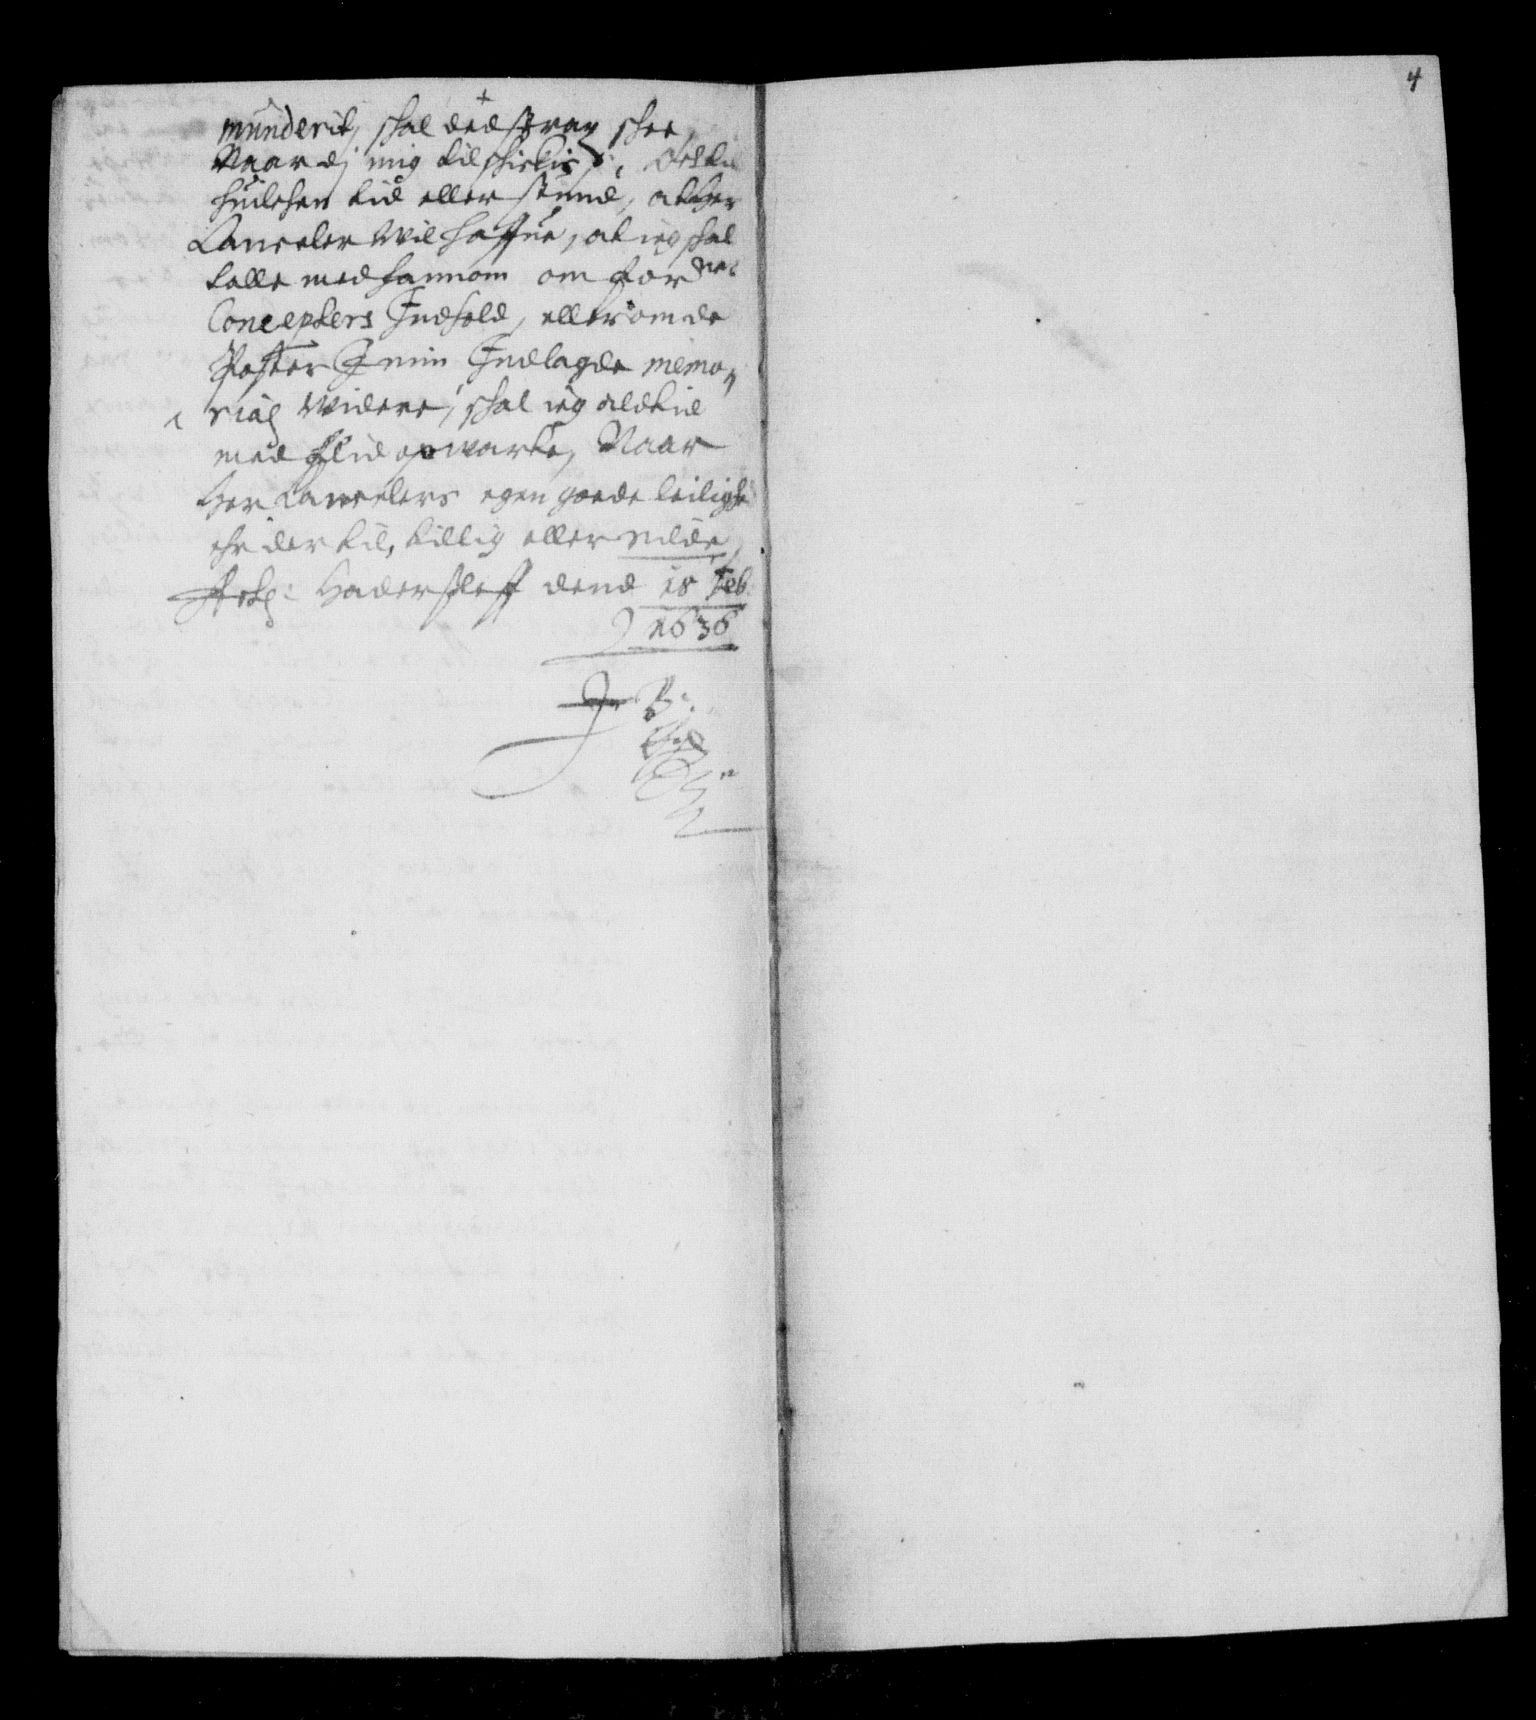 4
munderit, schal ded strax schee,
Naar dj mig tilschickis, Och til
huilchen tid eller stund, at Her
Canceler wil haffue, at ieg schal
talle med hannom om for^ne
Concepters Indhold, eller om de
Poster I min Indlagde memo,,
rial widere, schal ieg altid
med flid opwarte, Naar
Her Cancelers egen goede leiligh
ehr der til, tillig eller silde,
Haderszleff dend 18 Feb:
1636